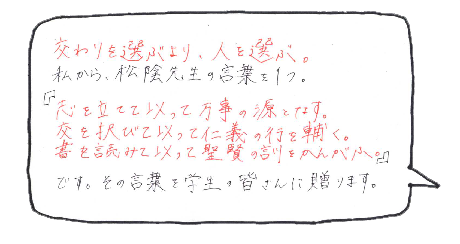 交わりを選ぶより、人を選ぶ。
私から、松陰先生の言葉を1つ。
『志を立てて以って万事の源となす。
交を択びて以って仁義の行を輔く。
書を読みて以って聖賢の訓をかんがふ。』
です。その言葉を学生の皆さんに贈ります。